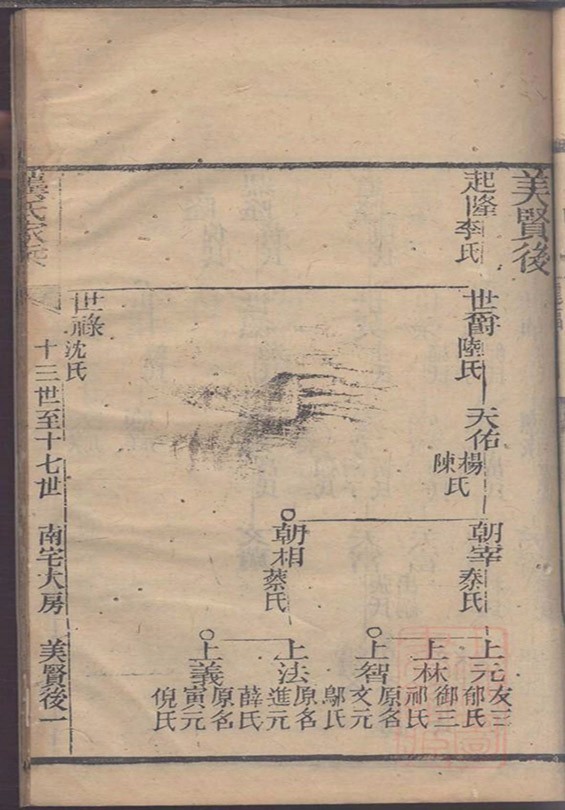 美賢後
起隆 李氏
世爵 陸氏
天佑 楊氏 陳氏
朝宰 秦氏
上元 友三 郁氏
上林 御三 祁氏
上智 原名文元 鄔氏
朝相 蔡氏
上法 原名進元 薛氏
上義 原名寅元 倪氏
世祿 沈氏
氏家乘
十三世至十七世 南宅大房 美賢後一